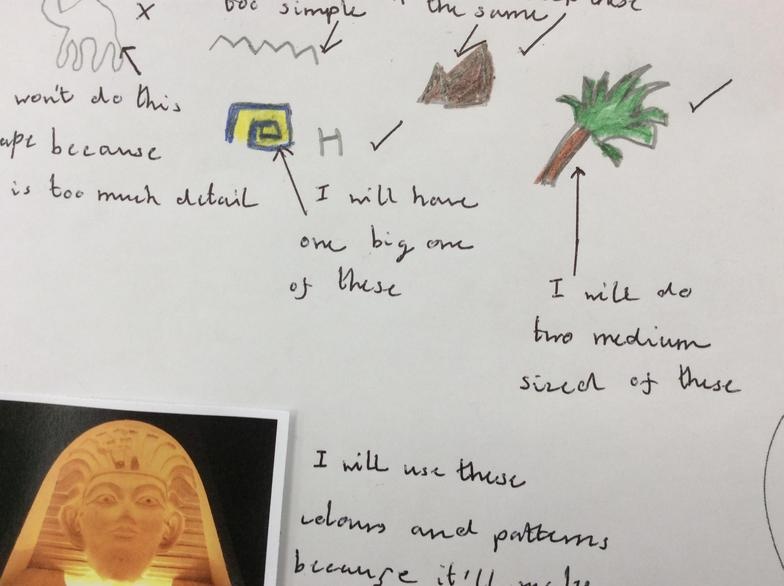 too simple
the same
won't do this
because
is too much detail
H
I will have
one big one
of these
I will do
two medium
sized of these
I will use these
colours and patterns
because it'll make